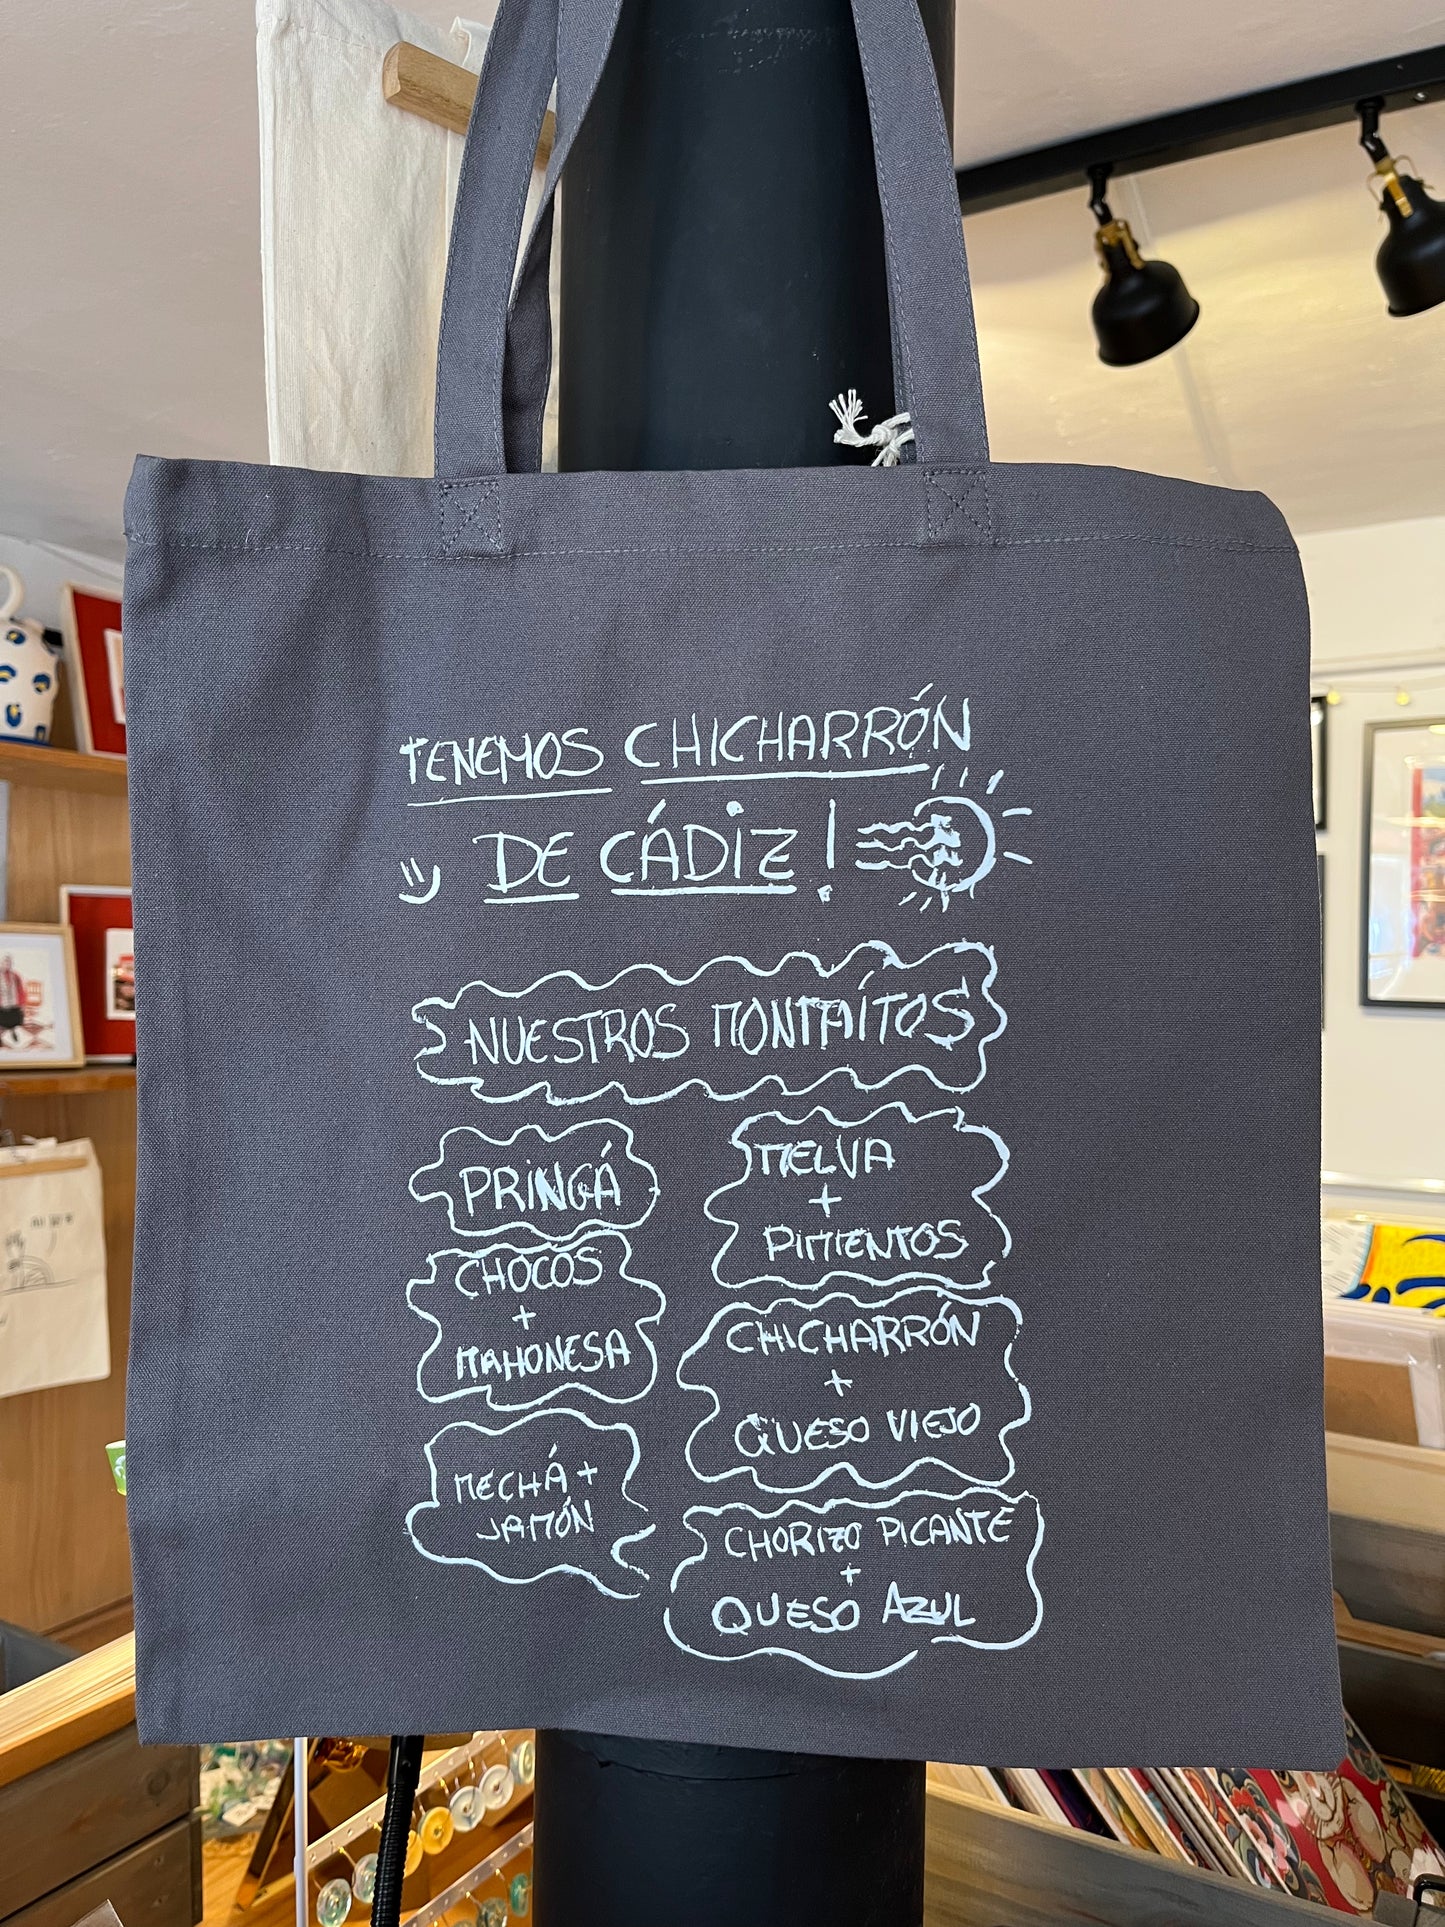 TENEMOS CHICHARRÓN
DE CÁDIZ!
NUESTROS MONTAÍTOS
PRINGÁ
CHOCOS
+
MAHONESA
MECHÁ +
JAMÓN
MELVA
+
PIMIENTOS
CHICHARRÓN
+
QUESO VIEJO
CHORIZO PICANTE
+
QUESO AZUL